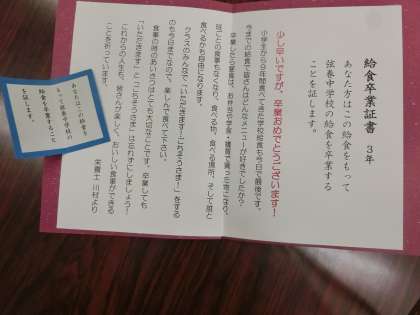 給食卒業証書 3年
あなた方はこの給食をもって
弦巻中学校の給食を卒業する
ことを証します。
少し早いですが、卒業おめでとうございます!
小学生から9年間食べてきた学校給食も今日で最後です。
今までの給食で皆さんはどんなメニューが好きでしたか?
卒業したら昼食は、お弁当や学食・購買で買った物になり、
班ごとの机もなくなり、食べる物、食べる場所、そして誰と
食べるかも自由になります。
クラスのみんなで「いただきます!ごちそうさま!」をする
のも今日までなので、楽しんで食べて下さい。
食事の時のあいさつはとても大切なことです。卒業しても
「いただきます」と「ごちそうさま」は忘れずにしましょう!
これからの人生も、皆さんが楽しく、おいしい食事ができる
ことを祈っています。
栄養士 川村より
あなた方はこの給食を
もって弦巻中学校の
給食を卒業すること
を証します。